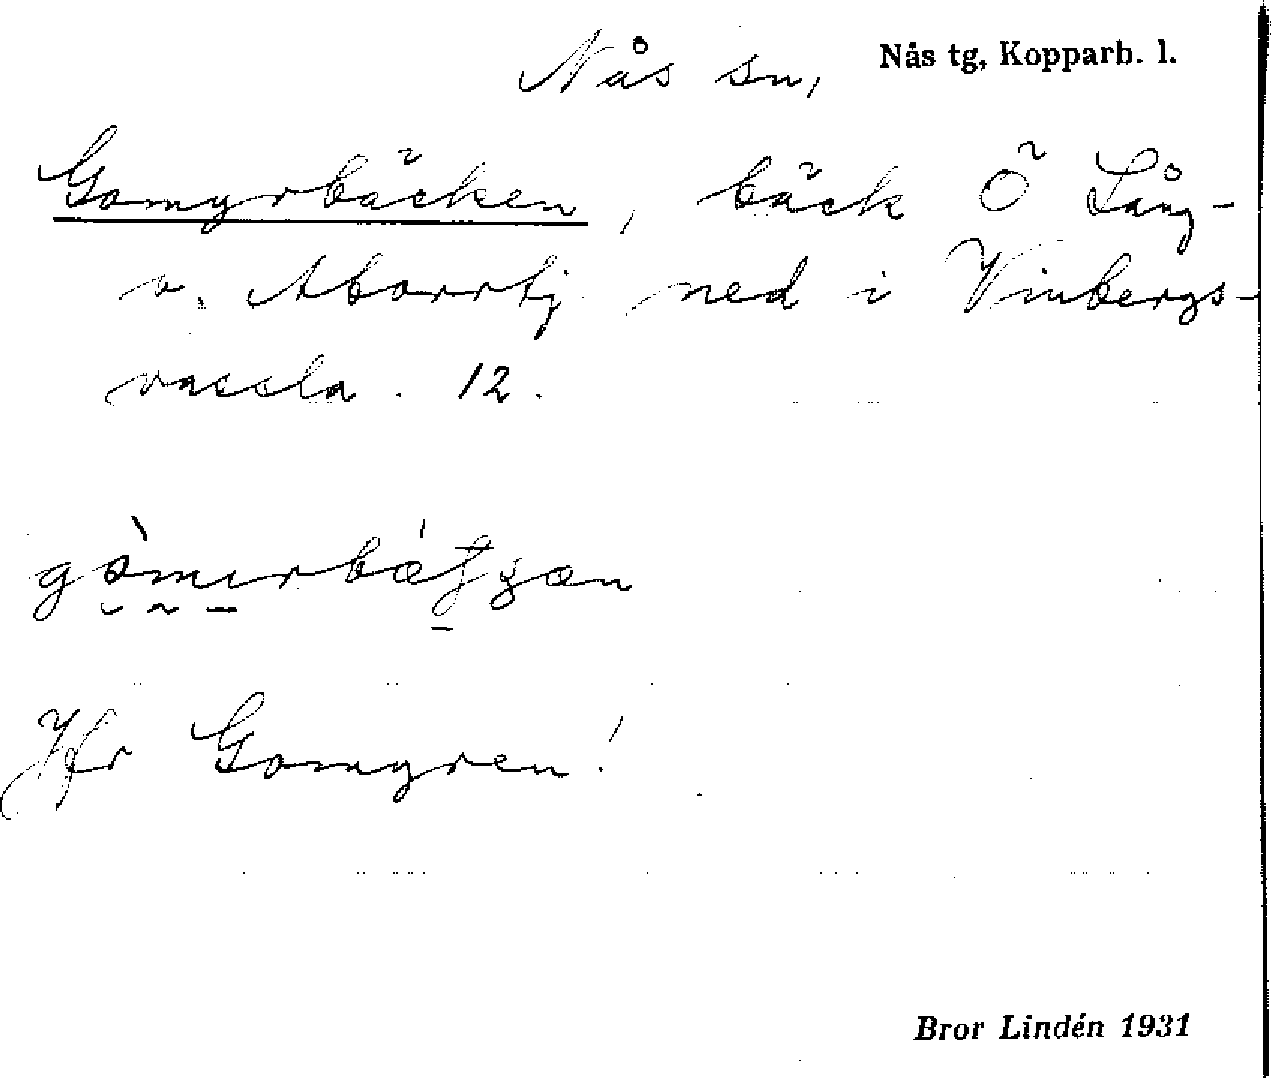 Nås sn, Nås tg, Kopparb. l.
Gomyrbäcken, bäck Ö Lång-
o. Aborrtj. ned i Vinbergs-
vassla. 12.
Jfr Gomyren!
Bror Lindén 1931